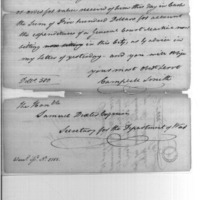 the Sum of Five hundred Dollars for account
the expenditures of a General Court Martial now
sitting in this City, as by advice in
my letter of yesterday - and you will oblige
your most Obt Servt
Campbell Smith
Dolls 500
The Honble
Samuel Dexter Esquire
Secretary for the Department of War